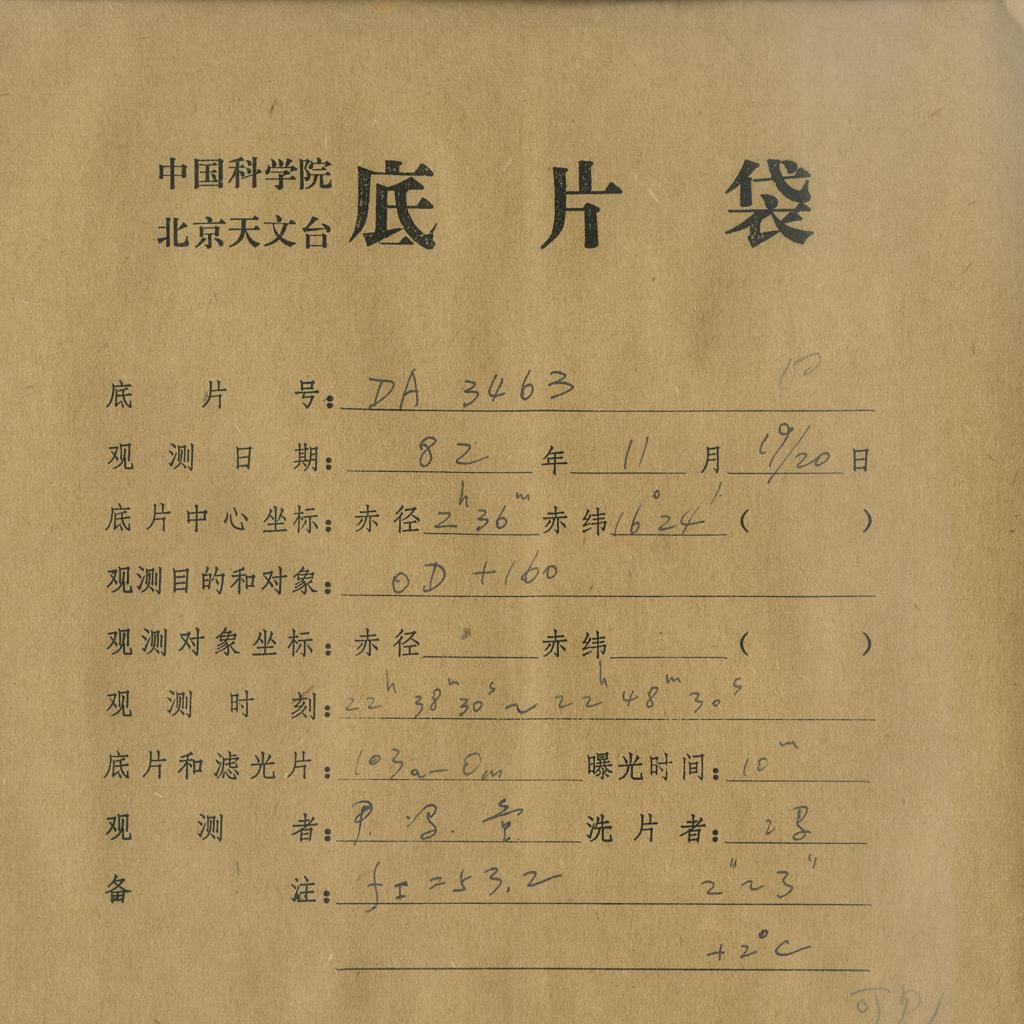 中国科学院
北京天文台
底片袋
底片号: DA 3463
观测日期: 82 年 11 月 19/20 日
底片中心坐标: 赤径 2h 36m 赤纬 16° 24′ ( )
观测目的和对象: OD +160
观测对象坐标: 赤径 赤纬 ( )
观测时刻: 22h 38m 30s ~ 22h 48m 30s
底片和滤光片: 103a-O 曝光时间: 10m
观测者: 洗片者:
备注: = 53.2 2″~3″
+2°C